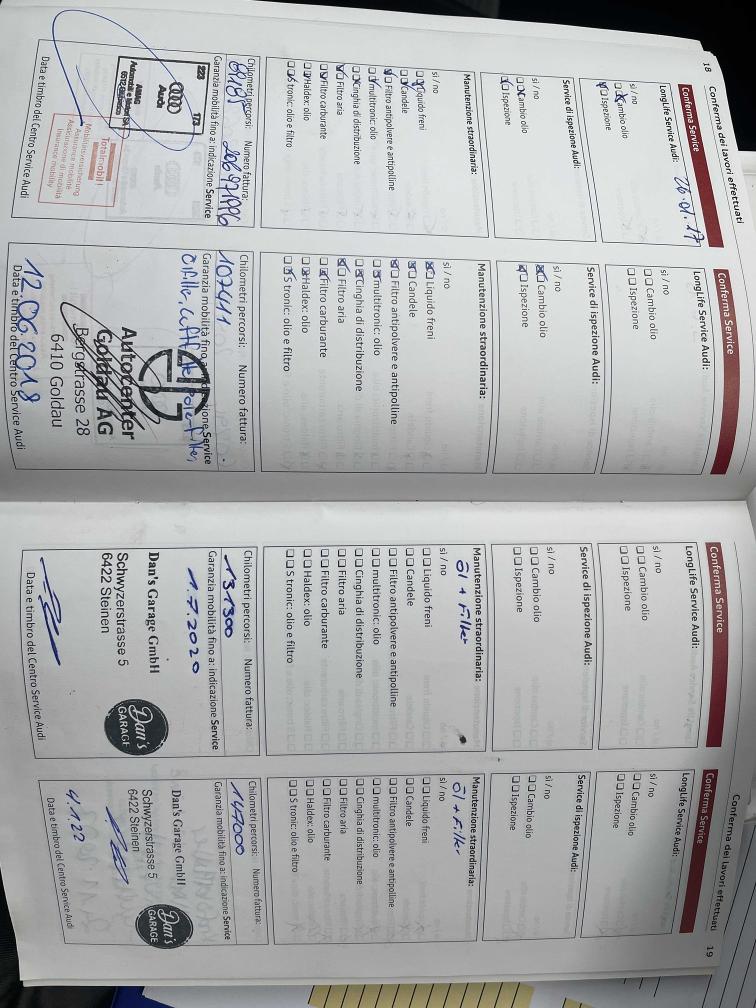 18
Conferma dei lavori effettuati
Conferma Service
LongLife Service Audi: 26.01.17
sì / no
Cambio olio
Ispezione
Service di ispezione Audi:
sì / no
Cambio olio
Ispezione
Manutenzione straordinaria:
sì / no
Liquido freni
Candele
Filtro antipolvere e antipolline
multitronic: olio
Cinghia di distribuzione
Filtro aria
Filtro carburante
Haldex: olio
S tronic: olio e filtro
Chilometri percorsi: Numero fattura:
Garanzia mobilità fino a: indicazione Service
223 173
Audi
AMAG
Totalmobil!
Mobilitätsversicherung
Assurance mobilité
Assicurazione di mobilità
Insurance mobility
Data e timbro del Centro Service Audi
Conferma Service
LongLife Service Audi:
sì / no
Cambio olio
Ispezione
Service di ispezione Audi:
sì / no
Cambio olio
Ispezione
Manutenzione straordinaria:
sì / no
Liquido freni
Candele
Filtro antipolvere e antipolline
multitronic: olio
Cinghia di distribuzione
Filtro aria
Filtro carburante
Haldex: olio
S tronic: olio e filtro
Chilometri percorsi: Numero fattura:
107441
Garanzia mobilità fino a: indicazione Service
Autocenter
Goldau AG
Bergstrasse 28
6410 Goldau
12.06.2018
Data e timbro del Centro Service Audi
Conferma Service
LongLife Service Audi:
sì / no
Cambio olio
Ispezione
Service di ispezione Audi:
sì / no
Cambio olio
Ispezione
Manutenzione straordinaria:
Öl + Filter
sì / no
Liquido freni
Candele
Filtro antipolvere e antipolline
multitronic: olio
Cinghia di distribuzione
Filtro aria
Filtro carburante
Haldex: olio
S tronic: olio e filtro
Chilometri percorsi: Numero fattura:
131300
Garanzia mobilità fino a: indicazione Service
1.7.2020
Dan's Garage GmbH
Schwyzerstrasse 5
6422 Steinen
Dan's
GARAGE
Data e timbro del Centro Service Audi
Conferma dei lavori effettuati
19
Conferma Service
LongLife Service Audi:
sì / no
Cambio olio
Ispezione
Service di ispezione Audi:
sì / no
Cambio olio
Ispezione
Manutenzione straordinaria:
Öl + Filter
sì / no
Liquido freni
Candele
Filtro antipolvere e antipolline
multitronic: olio
Cinghia di distribuzione
Filtro aria
Filtro carburante
Haldex: olio
S tronic: olio e filtro
Chilometri percorsi: Numero fattura:
147000
Garanzia mobilità fino a: indicazione Service
Dan's Garage GmbH
Schwyzerstrasse 5
6422 Steinen
Dan's
GARAGE
4.1.22
Data e timbro del Centro Service Audi